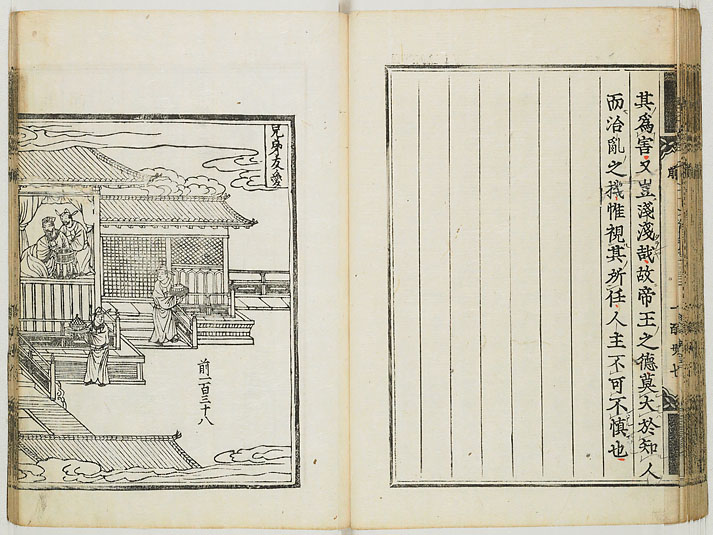 其爲害又豈淺淺哉故帝王之德莫大於知人
而治亂之機惟視其所任人主不可不慎也
兄弟友愛
前一百三十八